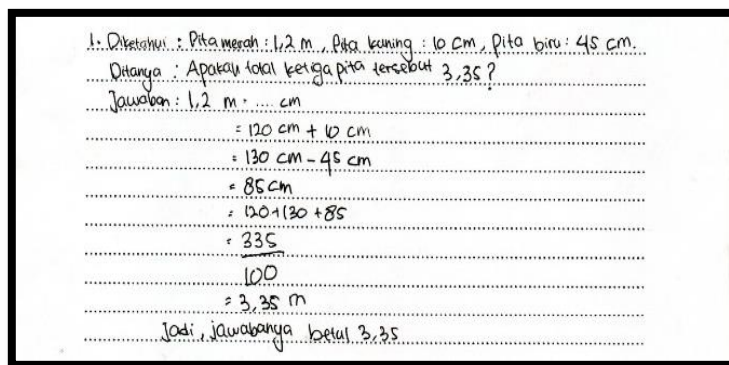 1. Diketahui : Pita merah : 1,2 m, Pita kuning : 10 cm, Pita biru : 45 cm.
Ditanya : Apakah total ketiga pita tersebut 3,35?
Jawaban : 1,2 m = .... cm
= 120 cm + 10 cm
= 130 cm - 45 cm
= 85 cm
= 120 + 130 + 85
= 335
100
= 3,35 m
Jadi, jawabanya betul 3,35